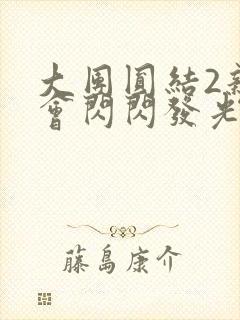 大團圓結2新
會閃閃發光
藤島康介